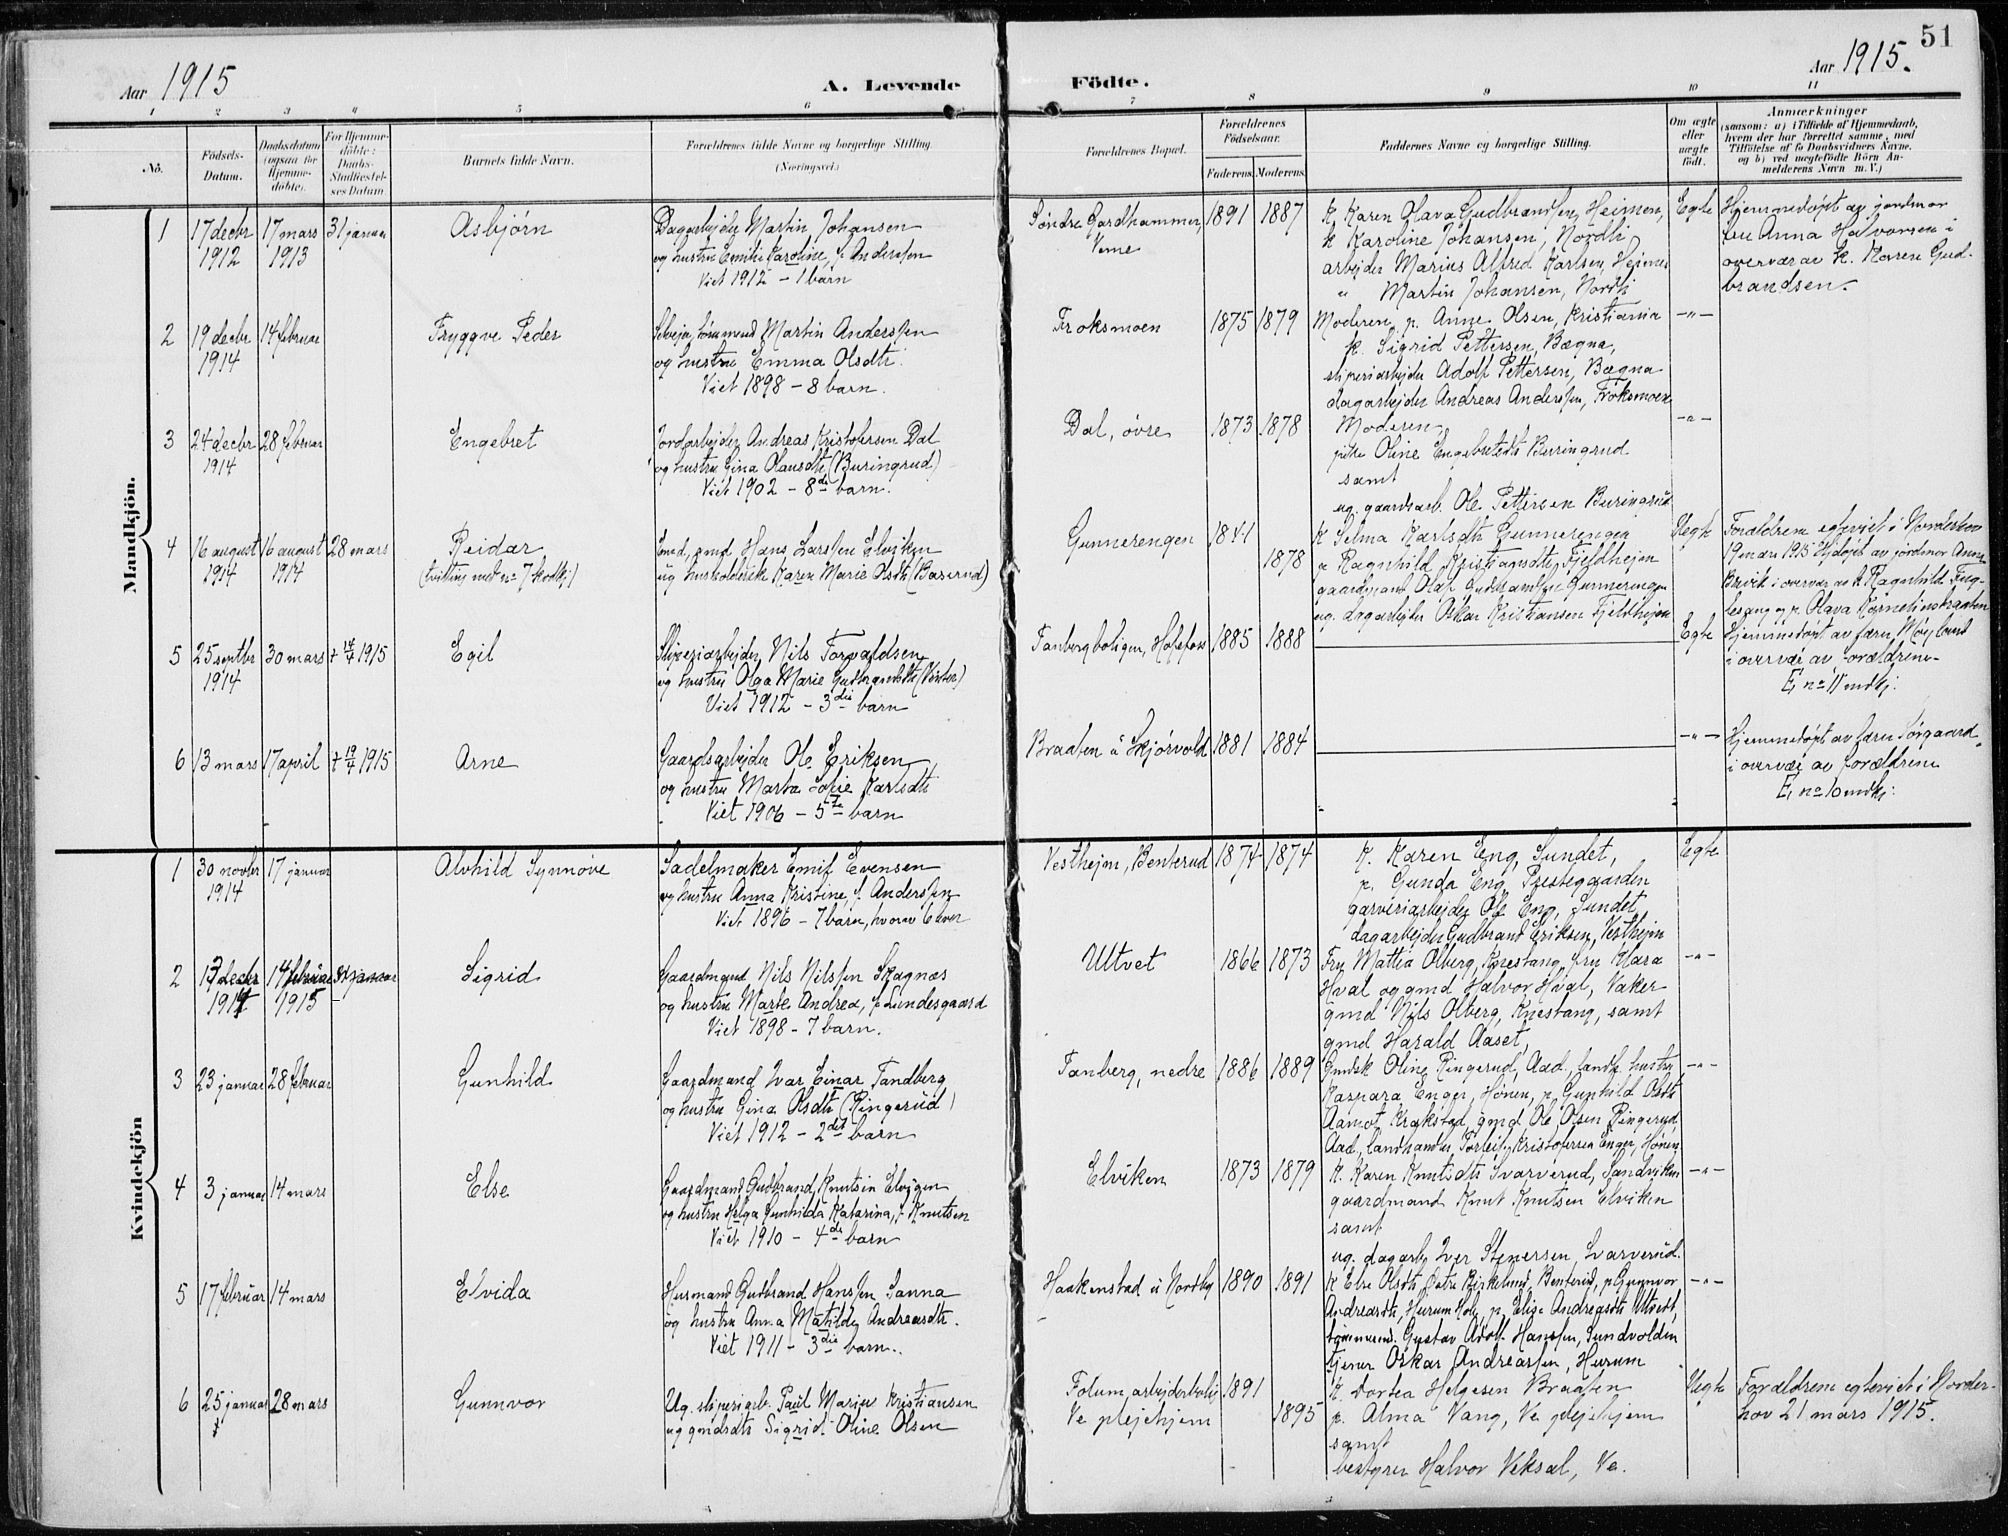 51
Aar 1915
A. Levende Födte.
Aar 1915.
1 2 3 4 5 6 7 8 9 10 11
No.
Födsels-
Datum.
Daabsdatum
(ogsaa for
Hjemme-
döbte).
For Hjemme-
döbte:
Daabs-
Stadfæstel-
ses Datum
Barnets fulde Navn.
Forældrenes fulde Navne og borgerlige Stilling
(Næringsvei.)
Forældrenes Bopæl.
Forældrenes
Födselsaar.
Faderens. Moderens.
Faddernes Navne og borgerlige Stilling.
Om ægte
eller
uægte
födt.
Anmærkninger
(saasom: a) i Tilfælde af Hjemmedaab,
hvem der har forrettet samme, med
Tilföielse af to Daabsvidners Navne,
og b) ved uægtefödte Börn An-
melderens Navn m. V.)
Mandkjön.
1 17 decbr 1912
17 mars 1913
31 januar
Asbjørn
Dagarbejder Martin Johansen
og hustru Emilie Karoline, f. Anderssen
Viet 1912 - 1 barn
Søndre Gardhammer,
Veme
1891 1887
K Karen Olava Gudbrandsen, Heimen,
k Karoline Johansen, Nordli
arbejder Marius Alfred Karlsen, Hejmen
" Martin Johansen, Nordli
Egte
Hjemmedøpt av jordmor
fru Anna Halvorsen i
overvær av k. Karen Gud-
brandsen.
2 19 decbr 1914
14 februar
Tryggve Peder
Martin Anderssen
og hustru Emma Olsdtr.
Viet 1898 - 8 barn.
Froksmoen
1875 1879
Moderen, p. Anne Olsen, Kristiania
k. Sigrid Pettersen, Bægna,
sliperiarbejder Adolf Pettersen, Bægna
dagarbejder Andreas Anderssen, Froksmoen
-"-
3 24 decbr 1914
28 februar
Engebret
Jordarbejder Andreas Kristofersen Dal
og hustru Gina Olausdtr (Buringrud)
Viet 1902 - 8de barn.
Dal, øvre
1873 1878
Moderen,
pike Oline Engebretsdtr Buringrud
samt
ug. gaardsarb. Ole Pettersen Buringrud
-"-
4 16 august 1914
16 august 1914
28 mars
Reidar
(tvilling med no 7 kvdkj:)
Emd, gmd Hans Larssen Elviken
ug husholderske Karen Marie Olsdtr (Baserud)
Gunnerengen
1841
1878
K Selma Karlsdtr Gunnerengen
" Ragnhild Kristiansdtr, Fjeldhejm
gaardmand Olaf Gudbrandsen Gunnerengen
ug. dagarbejder Oskar Kristiansen Fjeldhejm
Uegte
Forældrene egteviet i Norderhov
19 mars 1915 Hjdøpt av jordmor Anne
Brevik i overvær av k Ragnhild Fug-
lesang og p. Olava Kornelinsbraaten
5 25 septbr 1914
30 mars
+ 14/4 1915
Egil
Sliperiarbejder Nils Torvaldsen
og hustru Olga Marie Gudbrandsdtr (Vinter)
Viet 1912 - 3die barn
Tanbergboligen, Hofsfoss
1885 1888
Egte
Hjemmedøpt av færn
i overvær av forældrene
no 11 mdkj.
6 13 mars
17 april
+ 19/4 1915
Arne
Gaardsarbejder Ole Eriksen
og hustru Marta Sofie Karlsdtr
Viet 1906 - 5te barn
Braaten u Skjørvold
1881 1884
-"-
Hjemmedøpt av færn Sørgaard
i overvær av forældrene
no 10 mdkj.
Kvindekjön
1 30 novbr 1914
17 januar
Alvhild Synnøve
Sadelmaker Emil Evensen
og hustru Anna Kristine, f. Anderssen
Viet 1896 - 7 barn, hvorav 6 lever
Vesthejm, Benterud
1874 1874
K. Karen Eng, Sundet,
p. Gunda Eng, Prestegaarden
garveriarbejder Ole Eng, Sundet
dagarbejder Gudbrand Eriksen, Vesthejm
Egte
2 17 decbr 1914
14 februar 1915
31 januar
Sigrid
Gaardmand Nils Nilssen Skagnæs
og hustru Marte Andrea, f. Lundesgaard
Viet 1898 - 7 barn.
Ultvet
1866 1873
Fru Mattea Olberg, Knestang, fru Klara
Hval og gmd Halvor Hval, Vaker
gmd Nils Olberg, Knestang, samt
gmd Harald Aaset,
-"-
3 23 januar
28 februar
Gunhild
Gaardmand Ivar Einar Tandberg
og hustru Gina Olsdtr (Ringerud)
Viet 1912 - 2det barn
Tanberg, nedre
1886 1889
Gmdsk Oline Ringerud, Aad., landh. hustru
Kaspara Enger, Hønen, p. Gunhild Olsdtr
Aamot Krakstad, gmd Ole Olsen Ringerud,
Aad, landhandler Torleif Kristofersen Enger, Hønen
-"-
4 3 januar
14 mars
Else
Gaardmand Gudbrand Knutsen Elviken
og hustru Helga Gunhilda Katarina, f. Knutsen
Viet 1910 - 4de barn
Elviken
1873 1879
K. Karen Knutsdtr Svarverud, Sandviken
gaardmand Knut Knutsen Elviken
samt
ug. dagarb. Iver Stenersen Svarverud.
-"-
5 17 februar
14 mars
Elvida
Husmand Gudbrand Hanssen Sanna
og hustru Anna Matilde Andreasdtr.
Viet 1911 - 3die barn.
Haakenstad u Nordby
1890 1891
K Else Olsdtr Østre Kirkelund, Benterud, p Gunnvor
Andreasdtr, Hurum Hole, p. Elise Andreasdtr Ultvedt,
tømmermd. Gustav Adolf Hanssen, Sundvolden
tjener Oskar Andreassen, Hurum
-"-
6 25 januar
28 mars
Gunnvor
Ug. sliperiarb. Paul Marius Kristiansen
ug gmdsdtr Sigrid Oline Olsen
Folum, arbejderbolig
Ve plejehjem
1891
1895
K. Dortea Helgesen Braaten
p. Alma Vang, Ve plejehjem
samt
bestyrer Halvor Veksal, Ve.
Uegte
Forældrene egteviet i Norder-
hov 21 mars 1915.